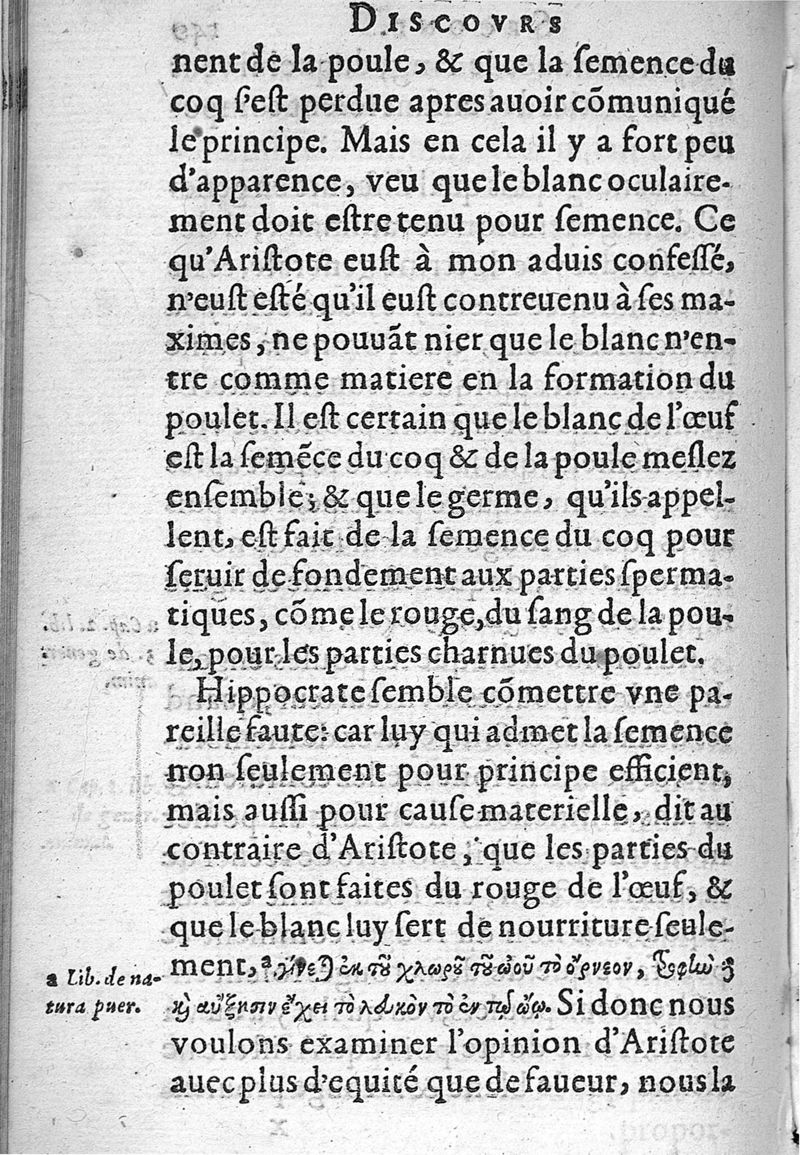 DISCOVRS
nent de la poule, & que la ſemence du
coq ſ'eſt perdue apres auoir cõmuniqué
le principe. Mais en cela il y a fort peu
d'apparence, veu que le blanc oculaire-
ment doit eſtre tenu pour ſemence. Ce
qu'Ariſtote euſt à mon aduis confeſſé,
n'euſt eſté qu'il euſt contreuenu à ſes ma-
ximes, ne pouuãt nier que le blanc n'en-
tre comme matiere en la formation du
poulet. Il eſt certain que le blanc de l'œuf
eſt la ſemẽce du coq & de la poule meſlez
enſemble; & que le germe, qu'ils appel-
lent, eſt fait de la ſemence du coq pour
ſeruir de fondement aux parties ſperma-
tiques, cõme le rouge, du ſang de la pou-
le, pour les parties charnues du poulet.
Hippocrate ſemble cõmettre vne pa-
reille faute: car luy qui admet la ſemence
non ſeulement pour principe efficient,
mais auſſi pour cauſe materielle, dit au
contraire d'Ariſtote, que les parties du
poulet ſont faites du rouge de l'œuf, &
que le blanc luy ſert de nourriture ſeule-
ment, ª γίνεται ἐκ τοῦ χλωροῦ τοῦ ὠοῦ τὸ ὄρνεον, τροφὴν δὲ
καὶ αὔξησιν ἔχει τὸ λευκὸν τὸ ἐν τῷ ὠῷ. Si donc nous
voulons examiner l'opinion d'Ariſtote
auec plus d'equité que de faueur, nous la
a Lib. de na-
tura puer.